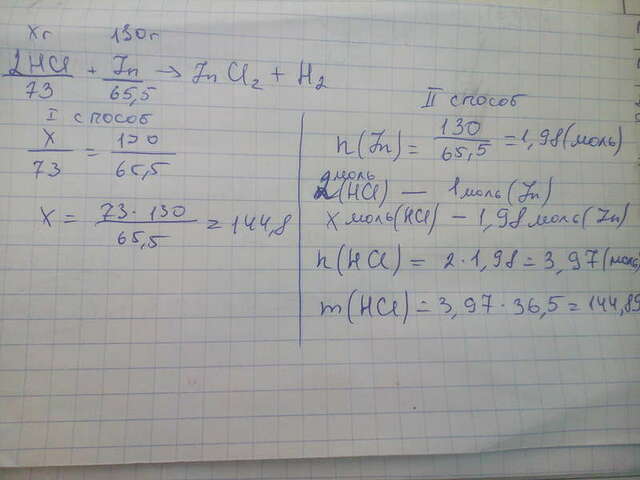 Xг 130г
2HCl + Zn → ZnCl₂ + H₂
73 65,5
I способ
X/73 = 130/65,5
X = 73·130/65,5 = 144,8
II способ
n(Zn) = 130/65,5 = 1,98(моль)
2моль(HCl) — 1моль(Zn)
X моль(HCl) – 1,98 моль(Zn)
n(HCl) = 2·1,98 = 3,97(моль
m(HCl) = 3,97·36,5 = 144,89